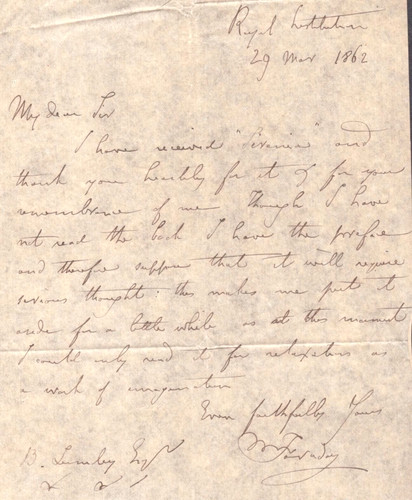 Royal Institution
29 Mar 1862
My dear Sir
I have received " " and
thank you heartily for it & for your
remembrance of me Though I have
not read the book I have the preface
and therefore suppose that it will require
serious thought: this makes me put it
aside for a little while as at this moment
I could only read it for relaxation as
a work of imagination
Ever faithfully Yours
M Faraday
B. Lumley Esqr